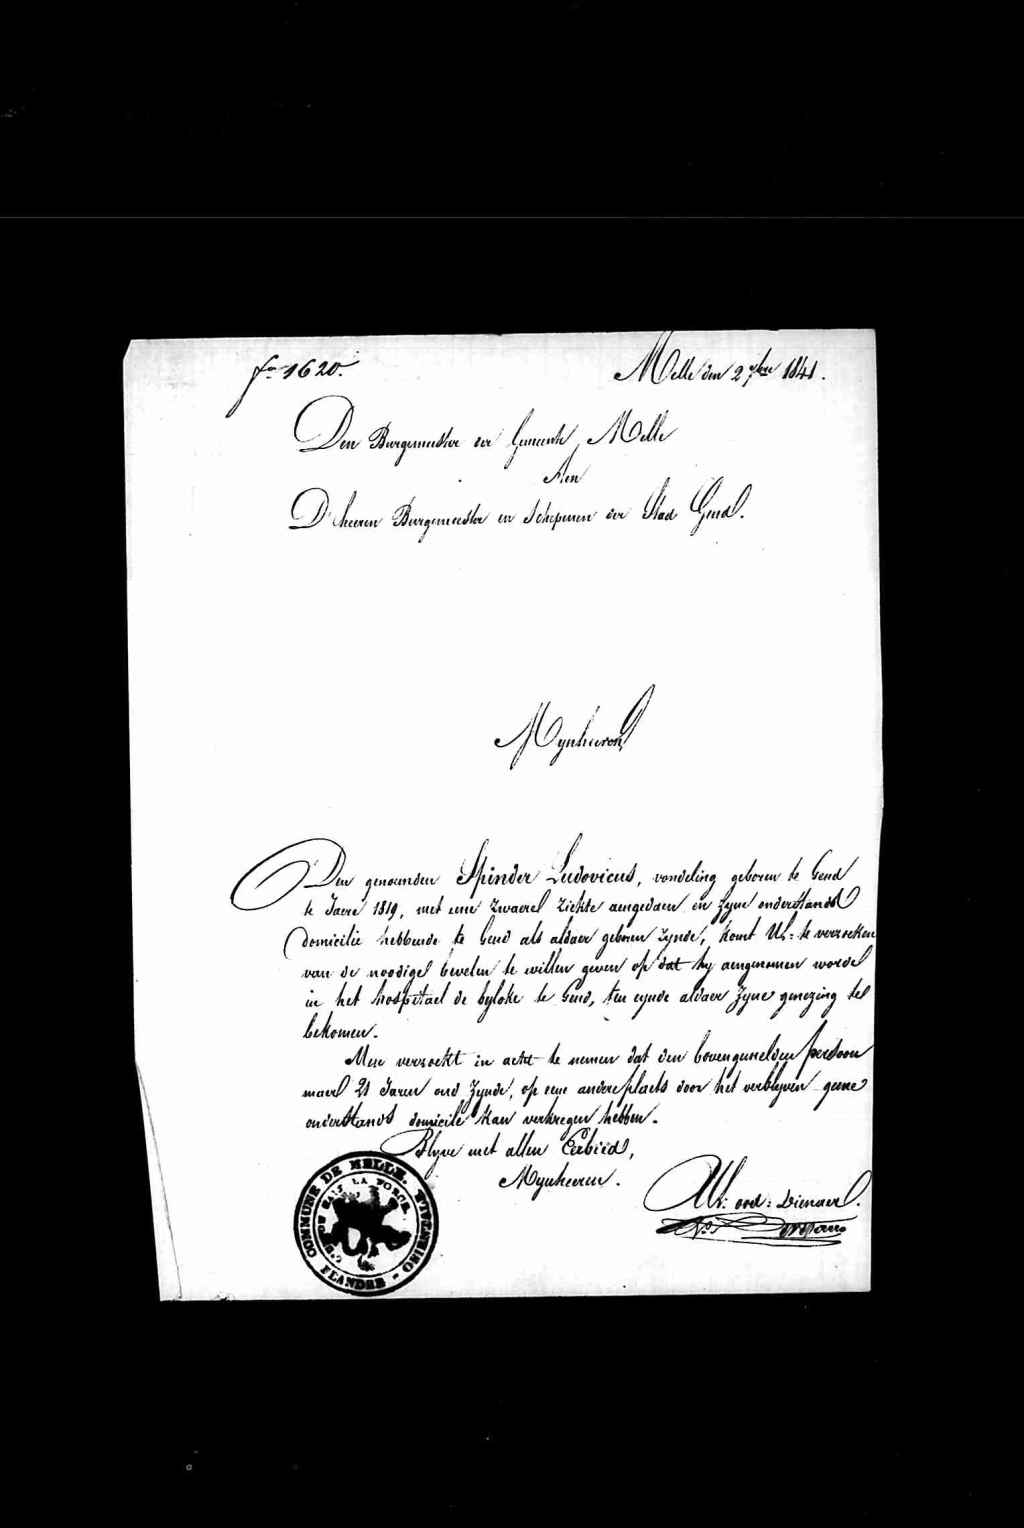 fo 1620.
Melle den 2 7bre 1841.
Den Burgemeester der Gemeente Melle
Aen
D'heeren Burgemeester en Schepenen der Stad Gend.
Mynheeren,
Den genoemden Spinder Ludovicus, vondeling geboren te Gend
te Jaere 1819, met eene zwaere ziekte aengedaen en zyne onderstands
domicilie hebbende te Gend als aldaer geboren zynde, komt UL: te verzoeken
van de noodige bevelen te willen geven op dat hy aengenomen worde
in het hospitael de byloke te Gend, ten eynde aldaer zyne genezing te
bekomen.
Men verzoekt in acht te nemen dat den bovengemelden persoon
maer 21 Jaren oud zynde, op eene andere plaets door het verblyven geene
onderstands domicilie kan verkregen hebben.
Blyve met allen Eerbied,
Mynheeren.
UL: ood: Dienaer.
COMMUNE DE MELLE. FLANDRE - ORIENTALE
L'UNION FAIT LA FORCE